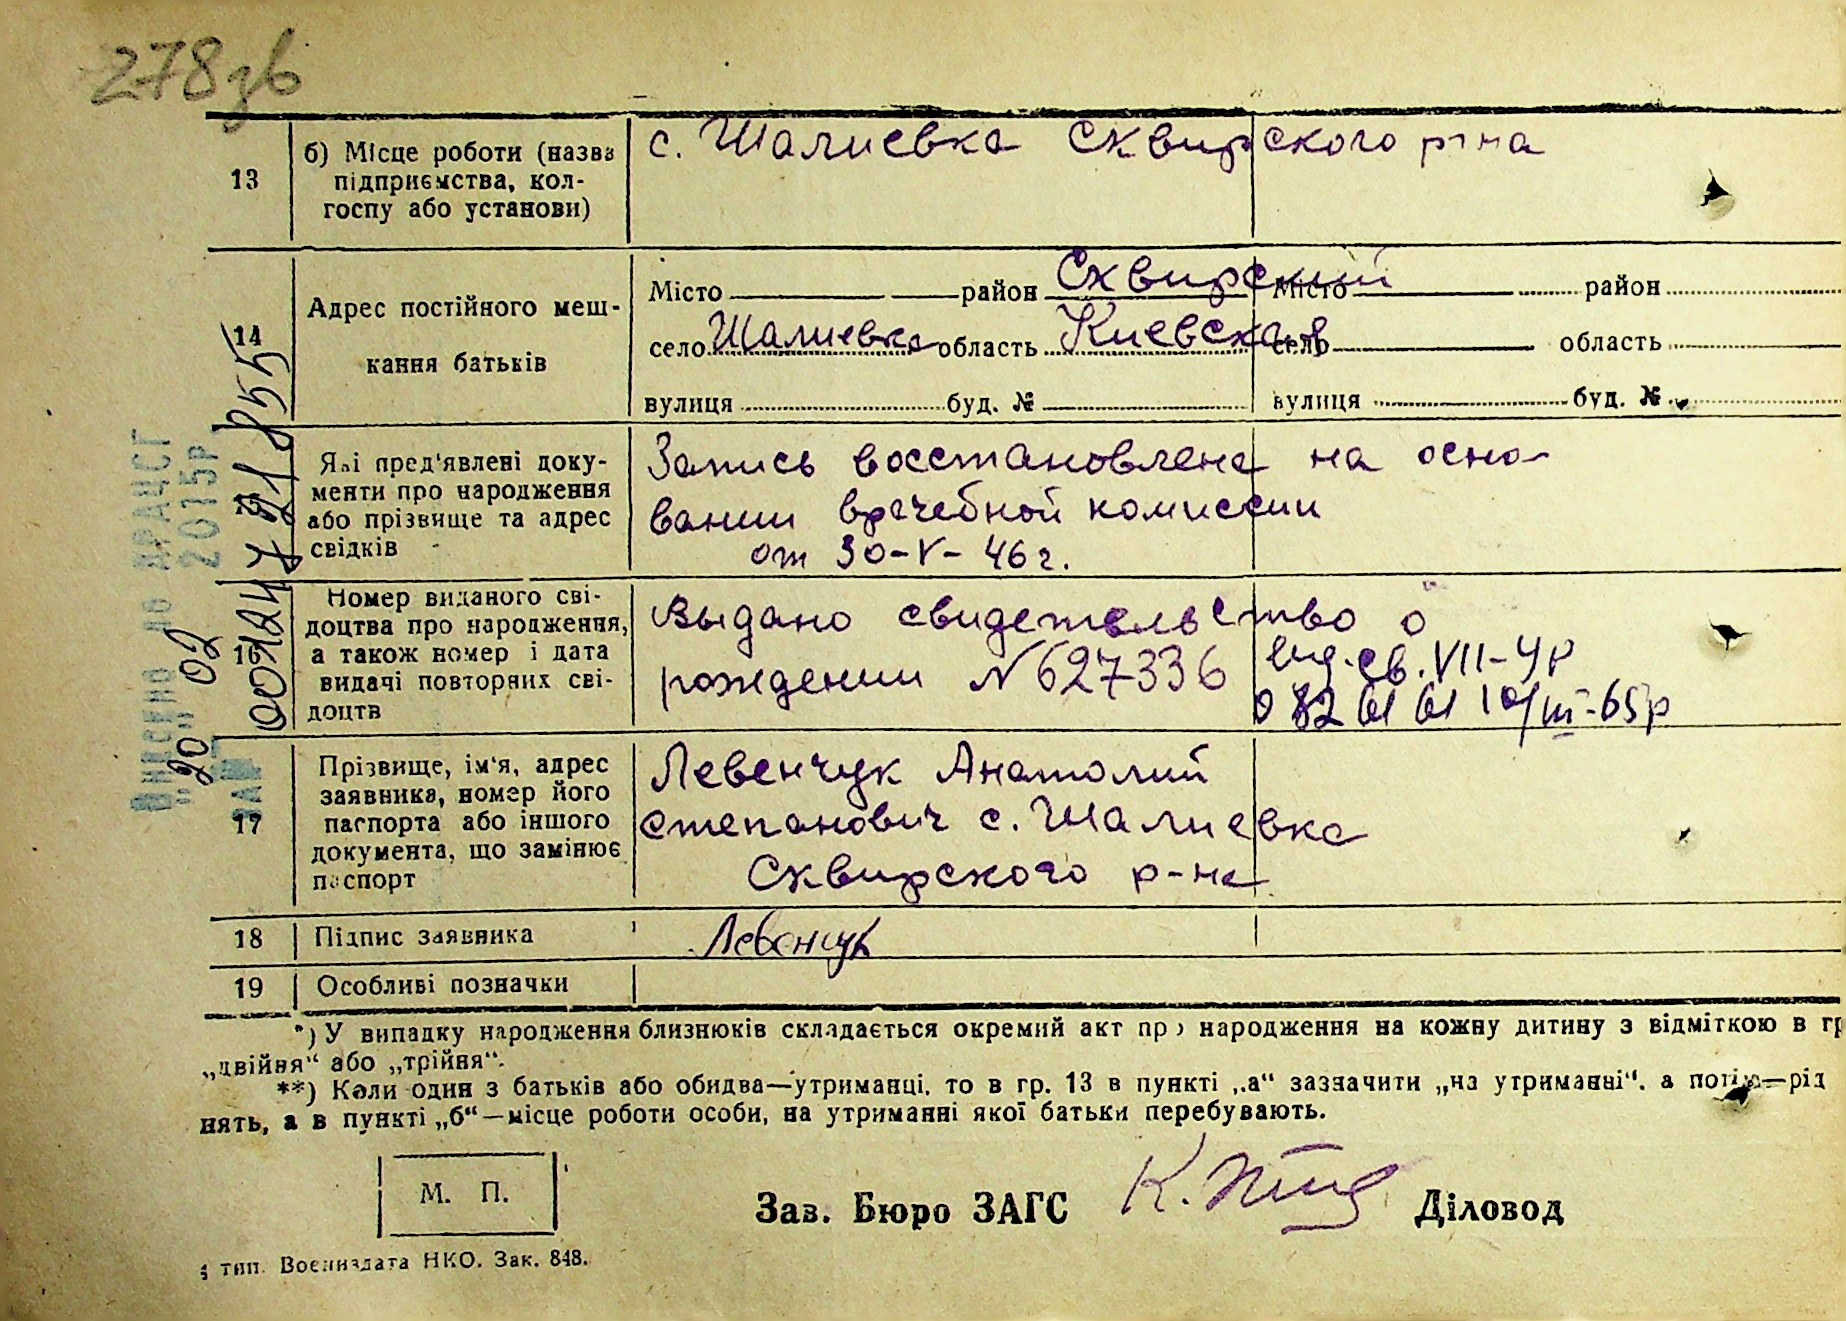 278зв
13
б) Місце роботи (назва
підприємства, кол-
госпу або установи)
с. Шалиевка Сквирского р-на
14
Адрес постійного меш-
кання батьків
Місто район Сквирский
село Шалиевка область Киевская
вулиця буд. №
Місто район
село область
вулиця буд. №
15
Які пред'явлені доку-
менти про народження
або прізвище та адрес
свідків
Запись восстановлена на осно-
вании врачебной комиссии
от 30-V-46г.
16
Номер виданого сві-
доцтва про народження,
а також номер і дата
видачі повторних сві-
доцтв
Выдано свидетельство о
рождении №627336
вид. св. VII-УР
10/III-65р
17
Прізвище, ім'я, адрес
заявника, номер його
паспорта або іншого
документа, що замінює
паспорт
Левенчук Анатолий
Степанович с. Шалиевка
Сквирского р-на
18
Підпис заявника
Левенчук
19
Особливі позначки
*) У випадку народження близнюків складається окремий акт про народження на кожну дитину з відміткою в гр
„двійня“ або „трійня“.
**) Коли один з батьків або обидва—утриманці, то в гр. 13 в пункті „а“ зазначити „на утриманні“, а потім—рід
нять, а в пункті „б“—місце роботи особи, на утриманні якої батьки перебувають.
М. П.
Зав. Бюро ЗАГС
Діловод
тип. Воениздата НКО. Зак. 848.
ДРАЦСГ
2015р
"20" 02
00124 721 855